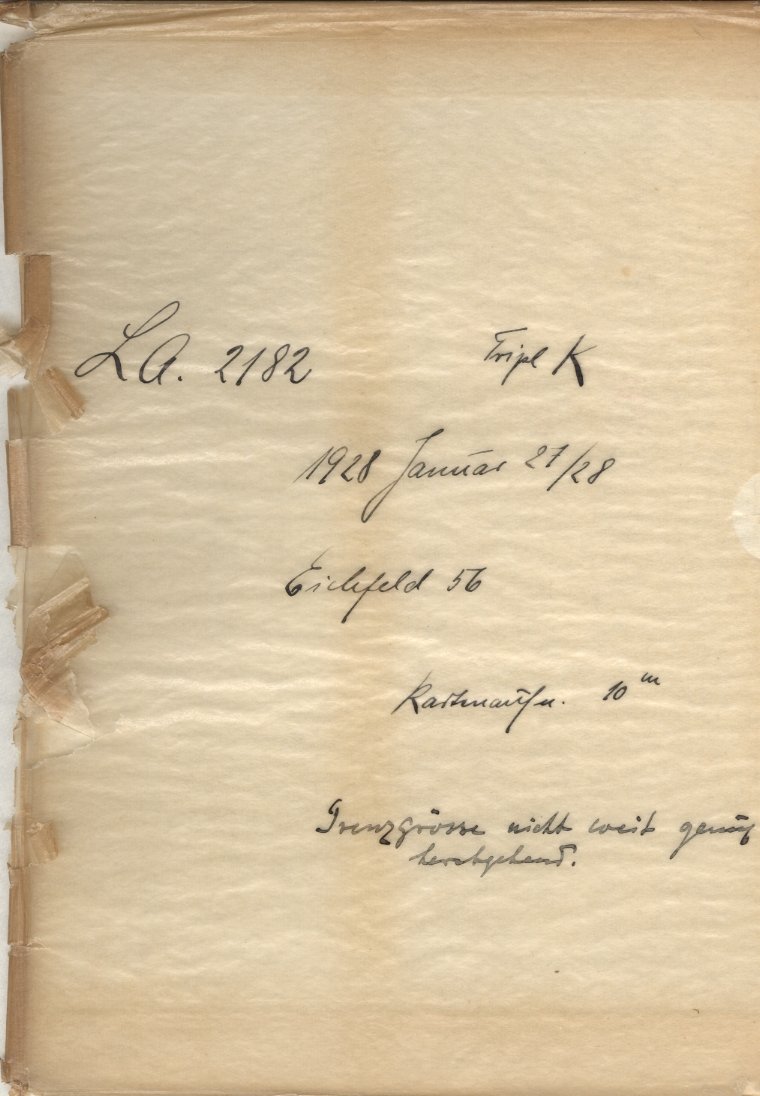 LA. 2182 Tripl K
1928 Januar 27/28
Eichfeld 56
10 m
Grenzgrösse nicht weit genug
herabgehend.